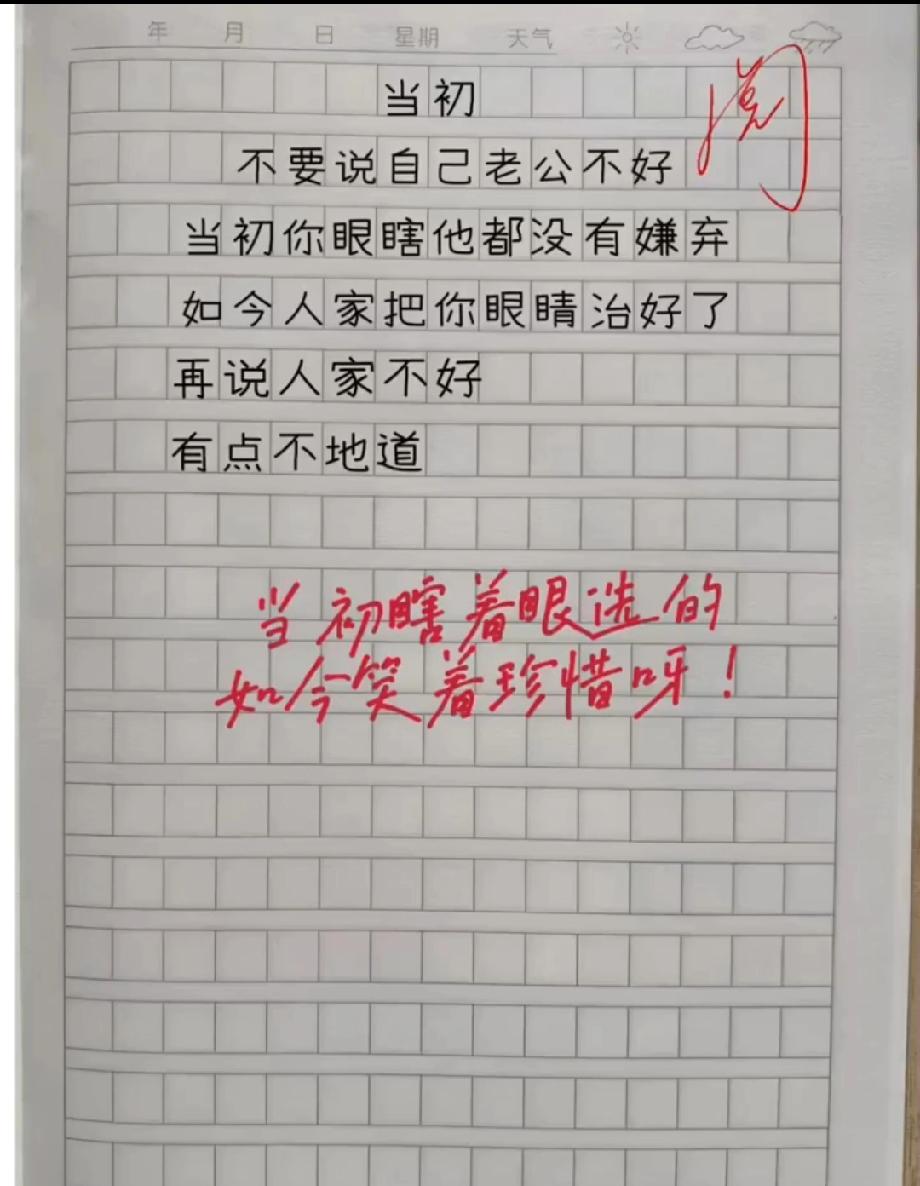 年 月 日 星期 天气
当初
阅
不要说自己老公不好
当初你眼瞎他都没有嫌弃
如今人家把你眼睛治好了
再说人家不好
有点不地道
当初瞎着眼选的
如今笑着珍惜呀！